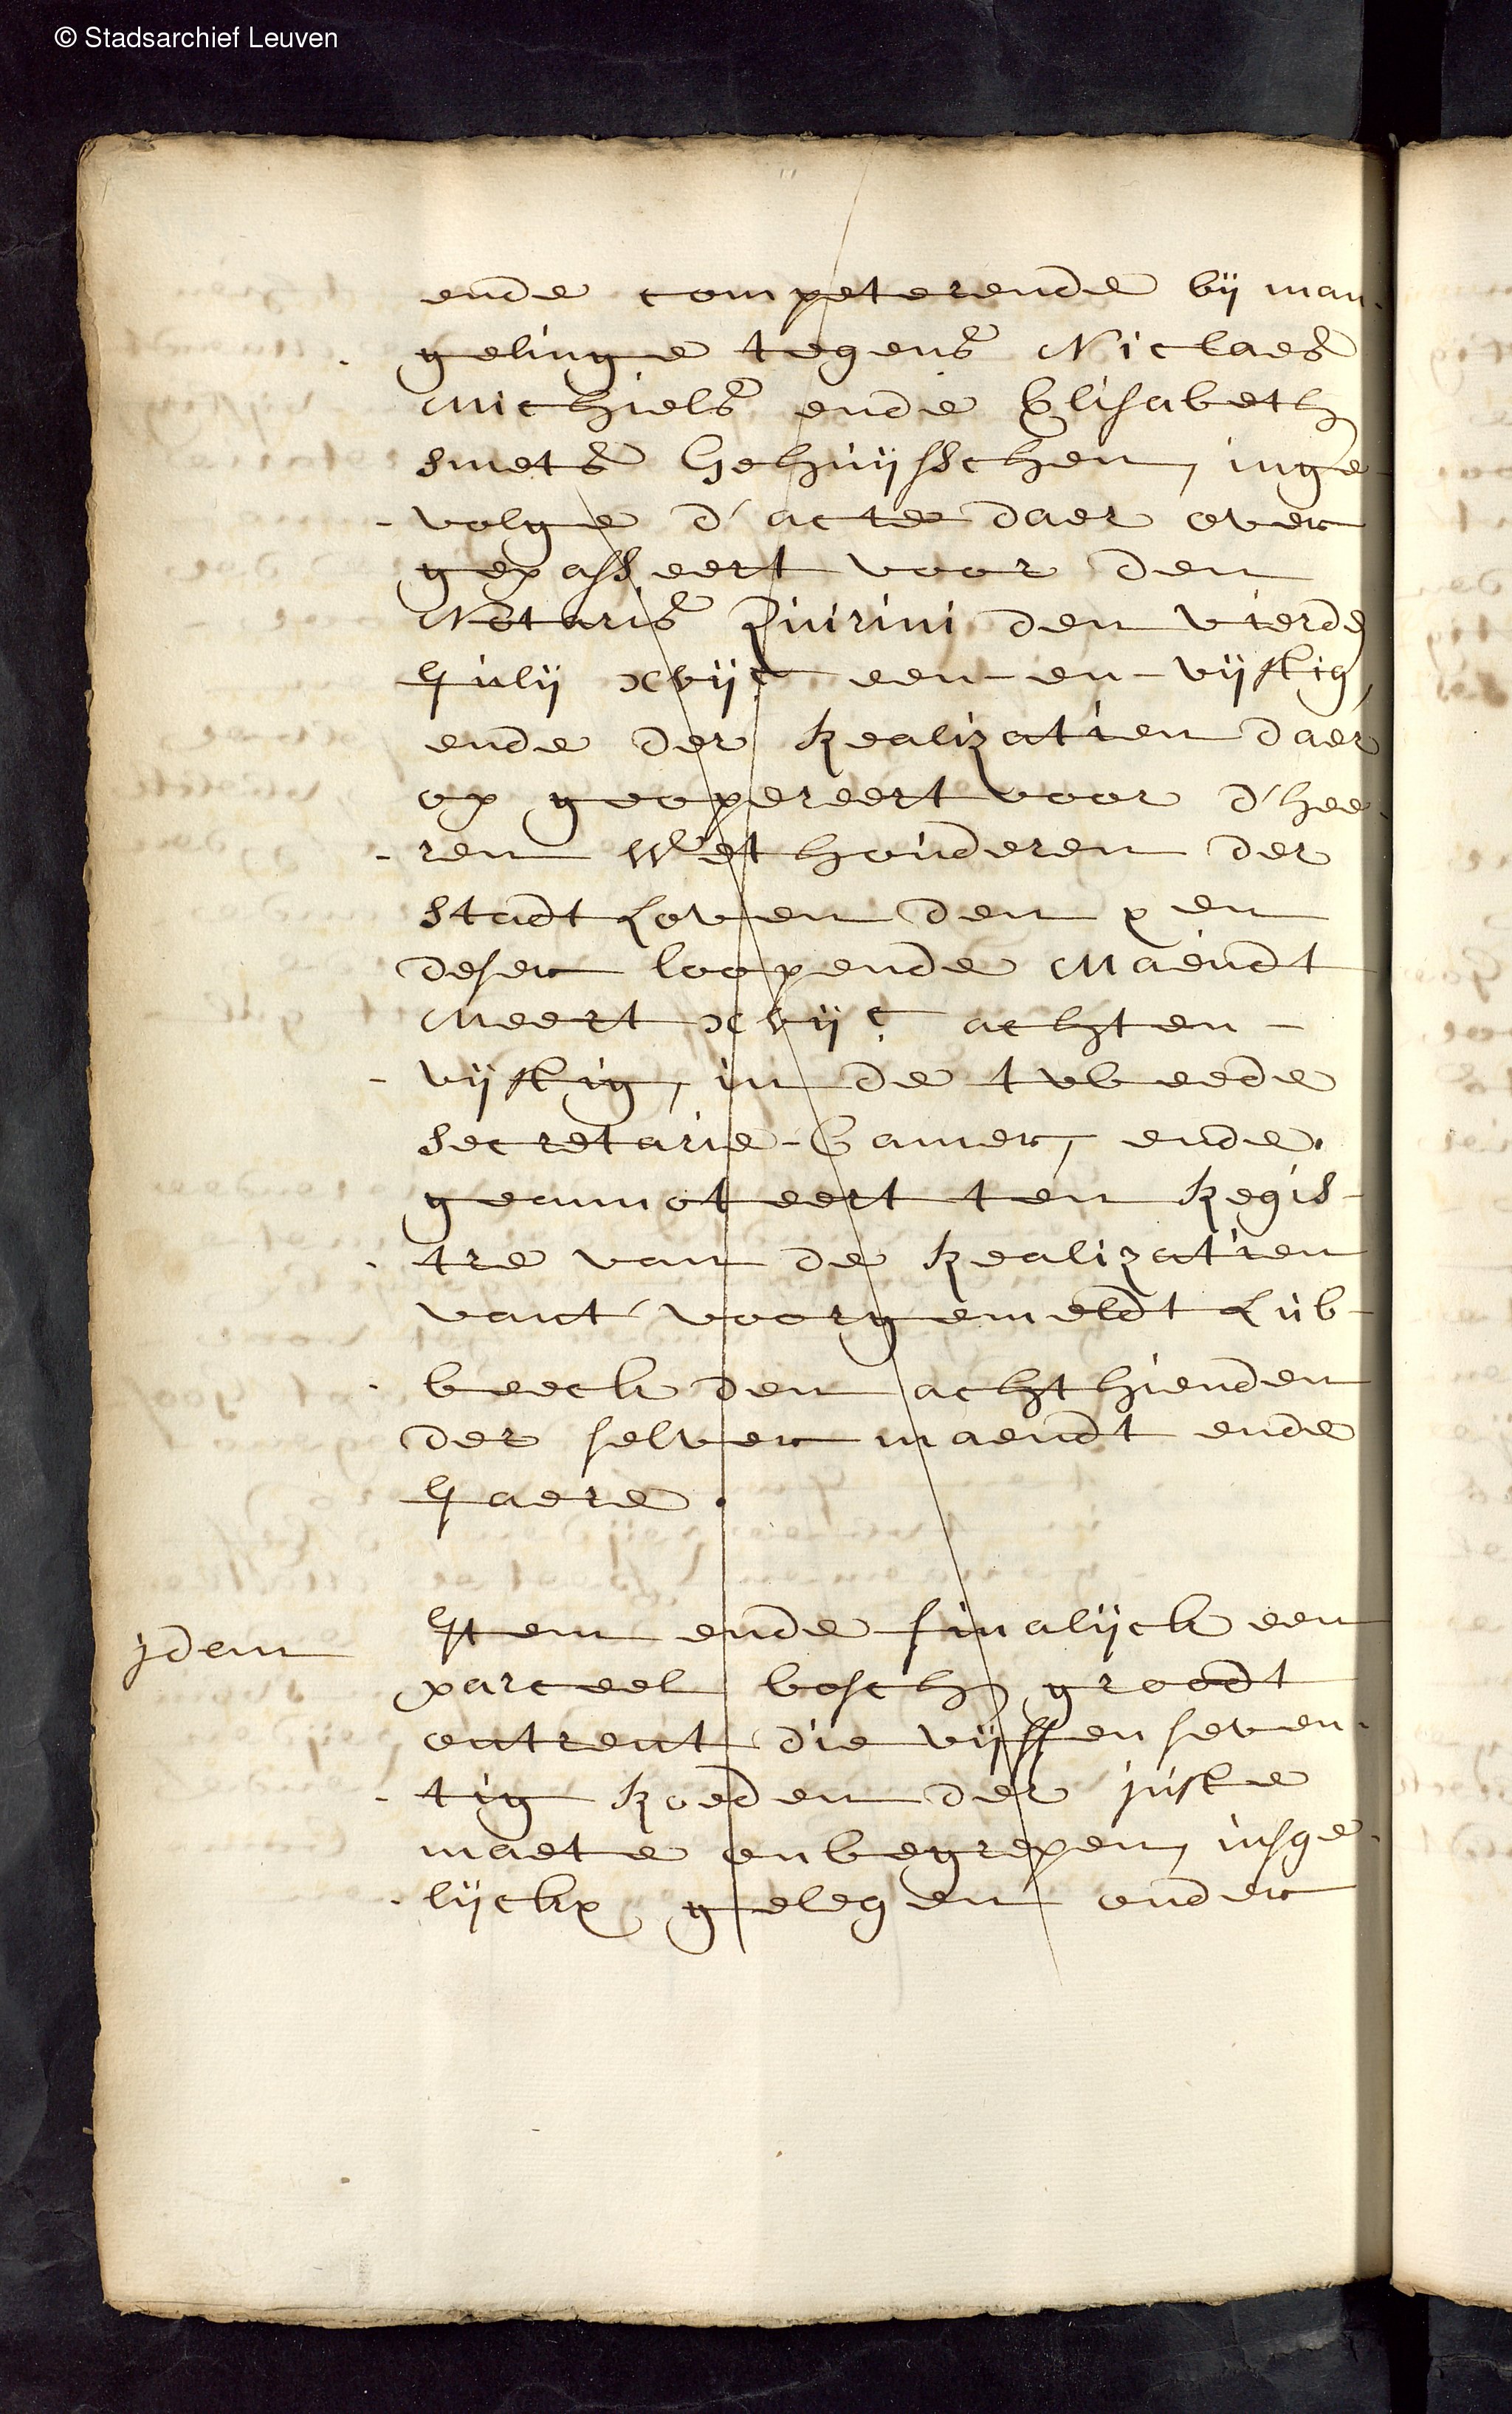 © Stadsarchief Leuven
ende competerende bij man-
gelinge tegens Niclaes
Michiels ende Elisabeth
Smets Gehuijsschen, inge-
-volge d'acte daer over
gepasseert voor den
Notaris Quirini den vierde
Julij xvijc een-en-vijftig,
ende der Realizatien daer
op geopereert voor d'hee-
-ren Wethouderen der
Stadt Loven den xen
deser loopende Maendt
Meert xvijc achten-
-vijftig, in de tweede
Secretarie-Camer, ende
geannoteert ten Regis-
tre van de Realizatien
vant' voorgemeldt Lub-
beeck den achthienden
der selver maendt ende
Jaere.
jdem
Item ende finalijck een
parceel bosch groodt
ontrent die vijffenseven-
-tig Roeden der juste
maete onbegrepen, insge-
-lijckx gelegen onder